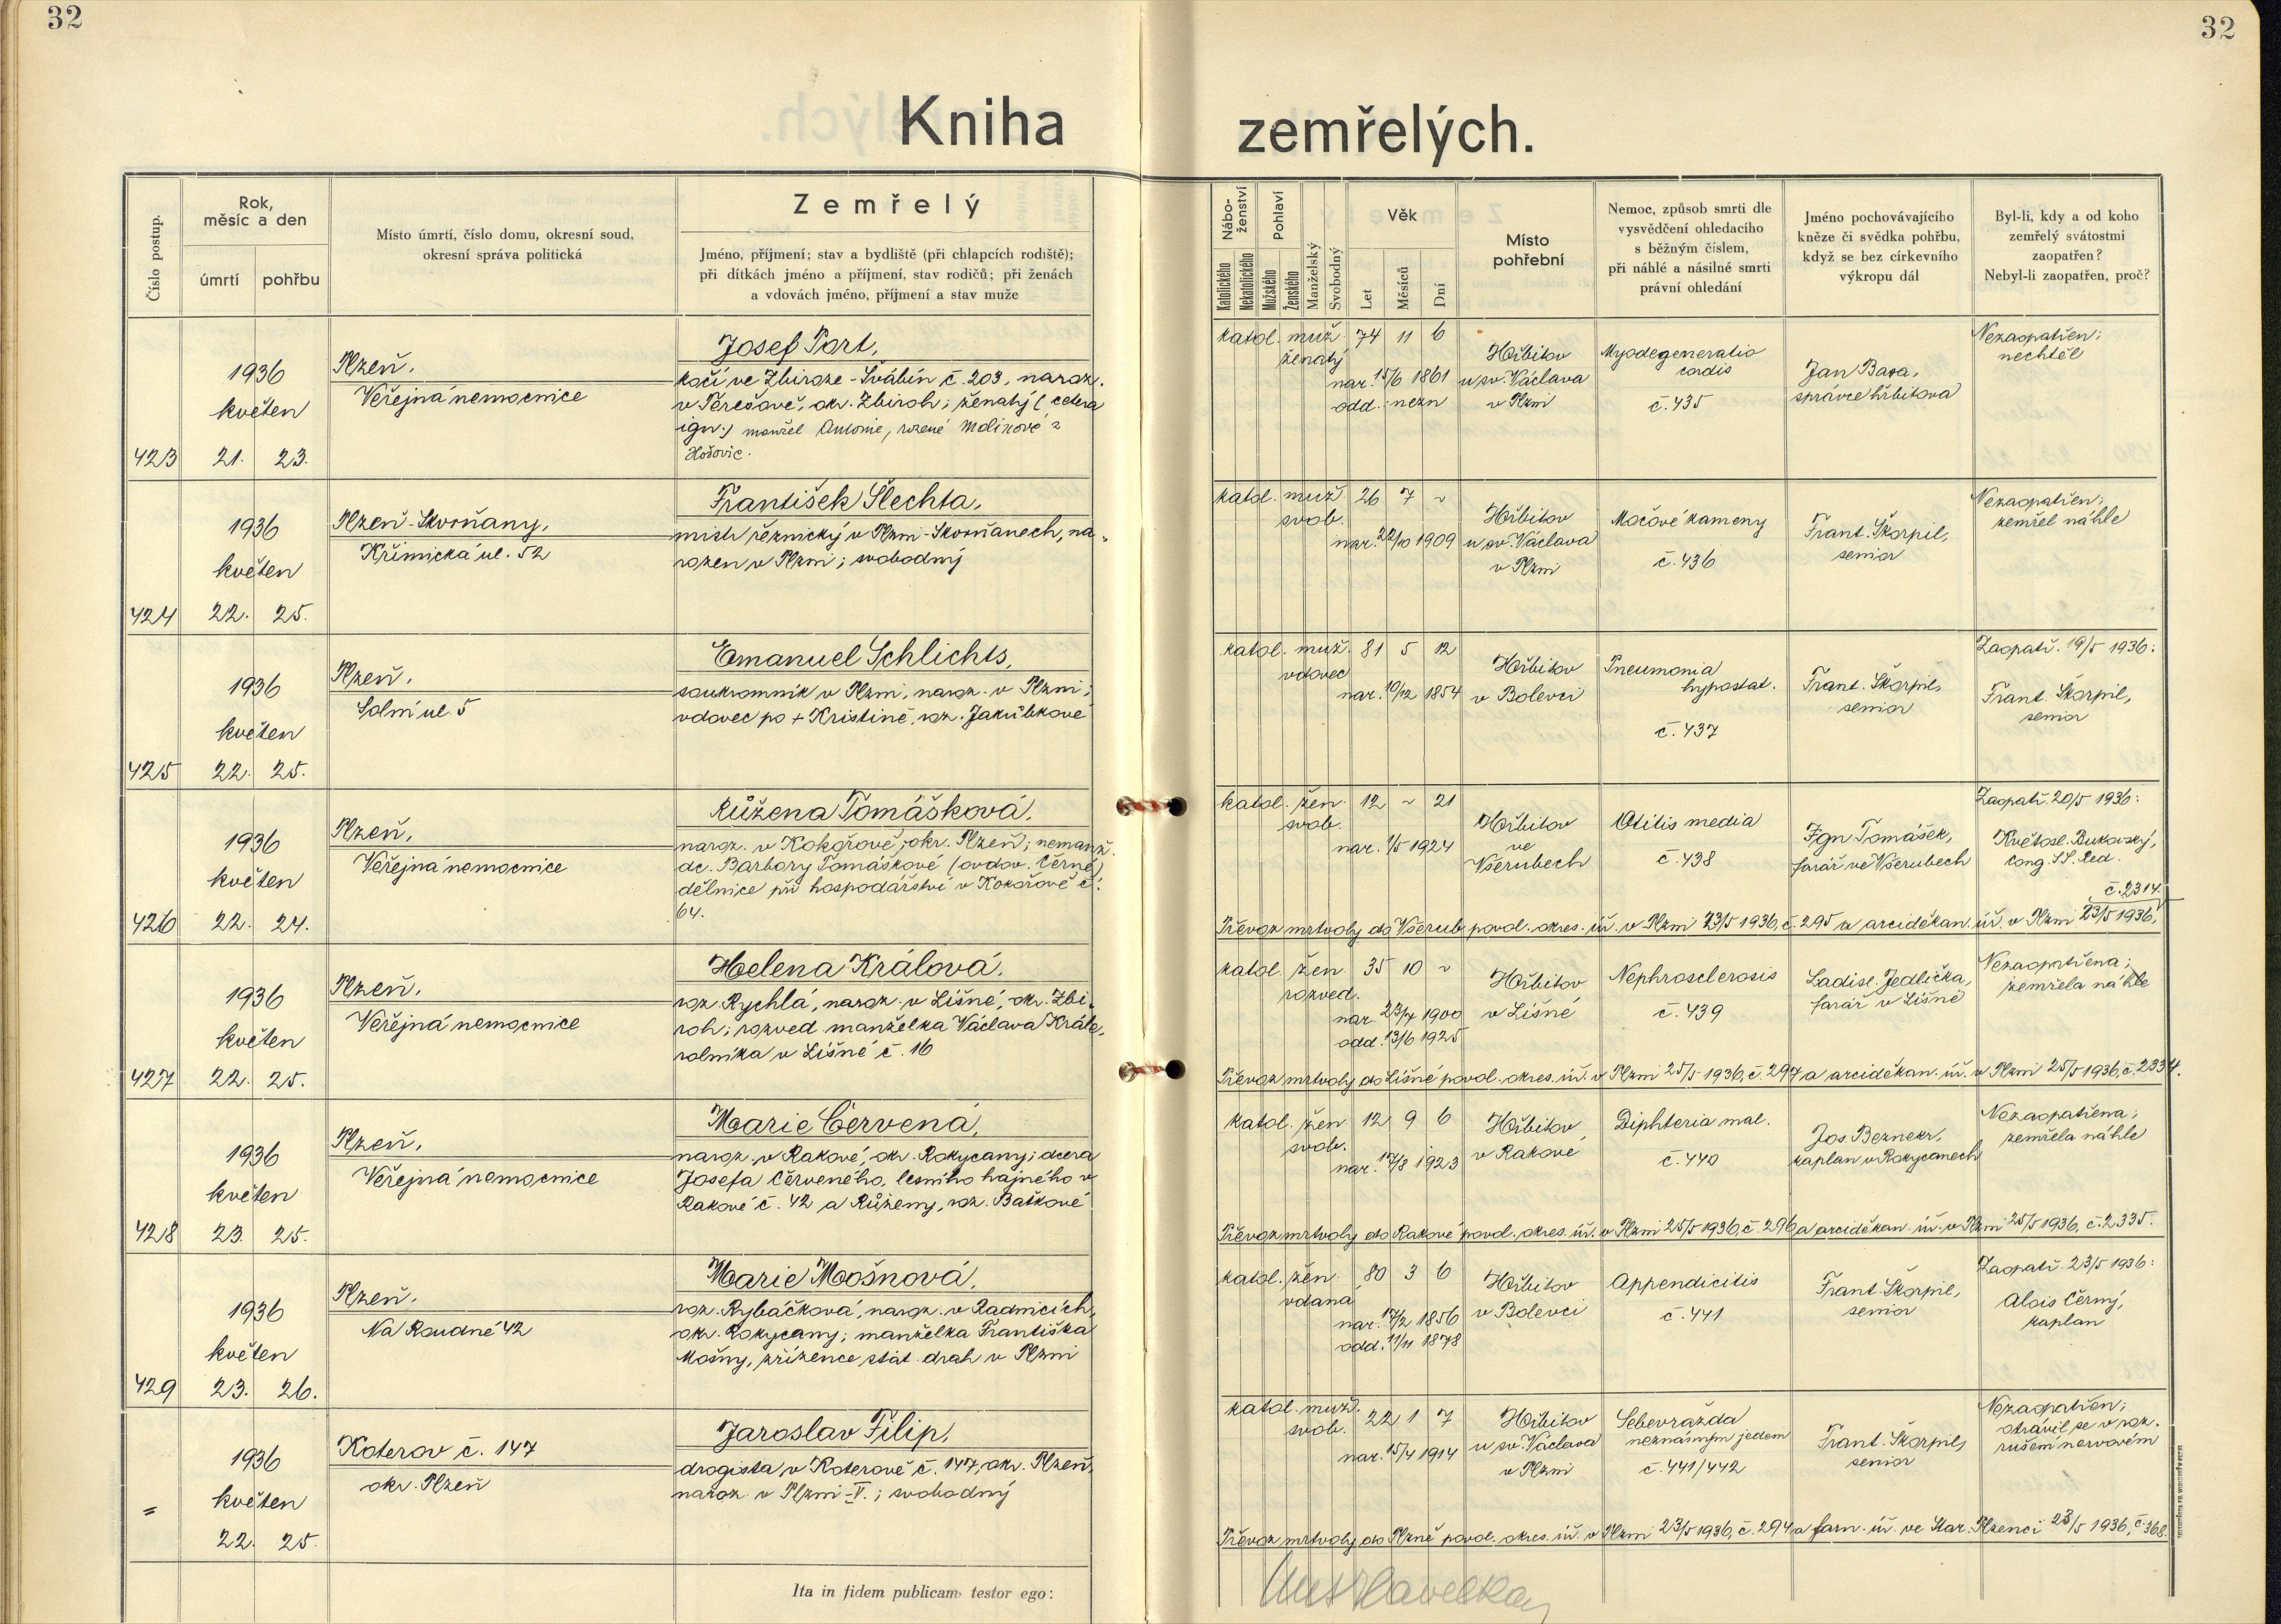 32
32
Kniha zemřelých.
Číslo postup.
Rok, měsíc a den
úmrtí
pohřbu
Místo úmrtí, číslo domu, okresní soud,
okresní správa politická
Zemřelý
Jméno, příjmení; stav a bydliště (při chlapcích rodiště);
při dítkách jméno a příjmení, stav rodičů; při ženách
a vdovách jméno, příjmení a stav muže
Nábo-
ženství
Katolického
Nekatolického
Pohlaví
Mužského
Ženského
Manželský
Svobodný
Věk
Let
Měsíců
Dní
Místo
pohřební
Nemoc, způsob smrti dle
vysvědčení ohledacího
s běžným číslem,
při náhlé a násilné smrti
právní ohledání
Jméno pochovávajícího
kněze či svědka pohřbu,
když se bez církevního
výkropu dál
Byl-li, kdy a od koho
zemřelý svátostmi
zaopatřen?
Nebyl-li zaopatřen, proč?
423
1936
květen
21. 23.
Plzeň,
Veřejná nemocnice
Josef Port,
kočí ve Zbiroze-Švábín č. 203, naroz.
v Terešově, okr. Zbiroh; ženatý (cetera
ign.) manžel Antonie, rozené Molínové z
katol. muž. 74 11 6
ženatý
nar. 15/6 1861
odd.: nezn
Hřbitov
u sv. Václava
v Plzni
Myodegeneratio
cordis
č. 435
Jan Bara,
správce hřbitova
Nezaopatřen;
nechtěl
424
1936
květen
22. 25.
Plzeň-Skvrňany,
Křimická ul. 52
František Šlechta,
mistr řeznický v Plzni-Skvrňanech, na-
rozen v Plzni; svobodný
katol. muž. 26 7 ~
svob.
nar. 22/10 1909
Hřbitov
u sv. Václava
v Plzni
Močové kameny
č. 436
Frant. Škorpil,
senior
Nezaopatřen;
zemřel náhle
425
1936
květen
22. 25.
Plzeň,
Solní ul. 5
Emanuel Schlichts,
soukromník v Plzni, naroz. v Plzni;
vdovec po + Kristině, roz. Jakůbkové
katol. muž. 81 5 12
vdovec
nar. 10/12 1854
Hřbitov
v Bolevci
Pneumonia
hypostat.
č. 437
Frant. Škorpil,
senior
Zaopatř. 19/5 1936:
Frant. Škorpil,
senior
426
1936
květen
22. 24.
Plzeň,
Veřejná nemocnice
Růžena Tomášková,
naroz. v Kokořově, okr. Plzeň; nemanž.
dc. Barbory Tomáškové (ovdov. Černé)
dělnice při hospodářství v Kokořově č.
64.
katol. žen. 12 ~ 21
svob.
nar. 1/5 1924
Hřbitov
ve
Všerubech
Otitis media
č. 438
Ign. Tomášek,
farář ve Všerubech
Zaopatř. 20/5 1936:
Květosl. Bukovský,
cong. SS. Red.
č. 2314.
Převoz mrtvoly do Všerub povol. okres. úř. v Plzni 23/5 1936, č. 295 a arciděkan. úř. v Plzni 23/5 1936,
427
1936
květen
22. 25.
Plzeň,
Veřejná nemocnice
Helena Králová,
roz. Rychlá, naroz. v Líšné, okr. Zbi-
roh; rozved. manželka Václava Krále,
rolníka v Líšné č. 16
katol. žen. 35 10 ~
rozved.
nar. 23/7 1900
odd. 13/6 1925
Hřbitov
v Líšné
Nephrosclerosis
č. 439
Ladisl. Jedlička,
farář v Líšné
Nezaopatřena;
zemřela náhle
Převoz mrtvoly do Líšné povol. okres. úř. v Plzni 25/5 1936, č. 297 a arciděkan. úř. v Plzni 25/5 1936, č. 2334.
428
1936
květen
23. 25.
Plzeň,
Veřejná nemocnice
Marie Červená,
naroz. v Rakové, okr. Rokycany; dcera
Josefa Červeného, lesního hajného v
Rakové č. 42 a Růženy, roz. Baťkové
katol. žen 12 9 6
svob.
nar. 17/8 1923
Hřbitov
v Rakové
Diphteria mal.
č. 440
Jos. Beznekr,
kaplan v Rokycanech
Nezaopatřena;
zemřela náhle
Převoz mrtvoly do Rakové povol. okres. úř. v Plzni 25/5 1936, č. 296 a arciděkan. úř. v Plzni 25/5 1936, č. 2335.
429
1936
květen
23. 26.
Plzeň,
Na Roudné 42
Marie Mošnová,
roz. Rybáčková, naroz. v Radnicích,
okr. Rokycany; manželka Františka
Mošny, zřízence stát. drah v Plzni
katol. žen. 80 3 6
vdaná
nar. 17/2 1856
odd. 11/11 1878
Hřbitov
v Bolevci
Appendicitis
č. 441
Frant. Škorpil,
senior
Zaopatř. 23/5 1936:
Alois Černý,
kaplan
=
1936
květen
22. 25.
Koterov č. 147
okr. Plzeň
Jaroslav Filip,
drogista v Koterově č. 147, okr. Plzeň,
naroz. v Plzni-V.; svobodný
katol. muž. 22 1 7
svob.
nar. 15/4 1914
Hřbitov
u sv. Václava
v Plzni
Sebevražda
neznámým jedem
č. 441/442
Frant. Škorpil,
senior
Nezaopatřen;
otrávil se v roz-
rušení nervovém
Převoz mrtvoly do Plzně povol. okres. úř. v Plzni 23/5 1936, č. 294 a farn. úř. ve Star. Plzenci 23/5 1936, č. 368.
Ita in fidem publicam testor ego: